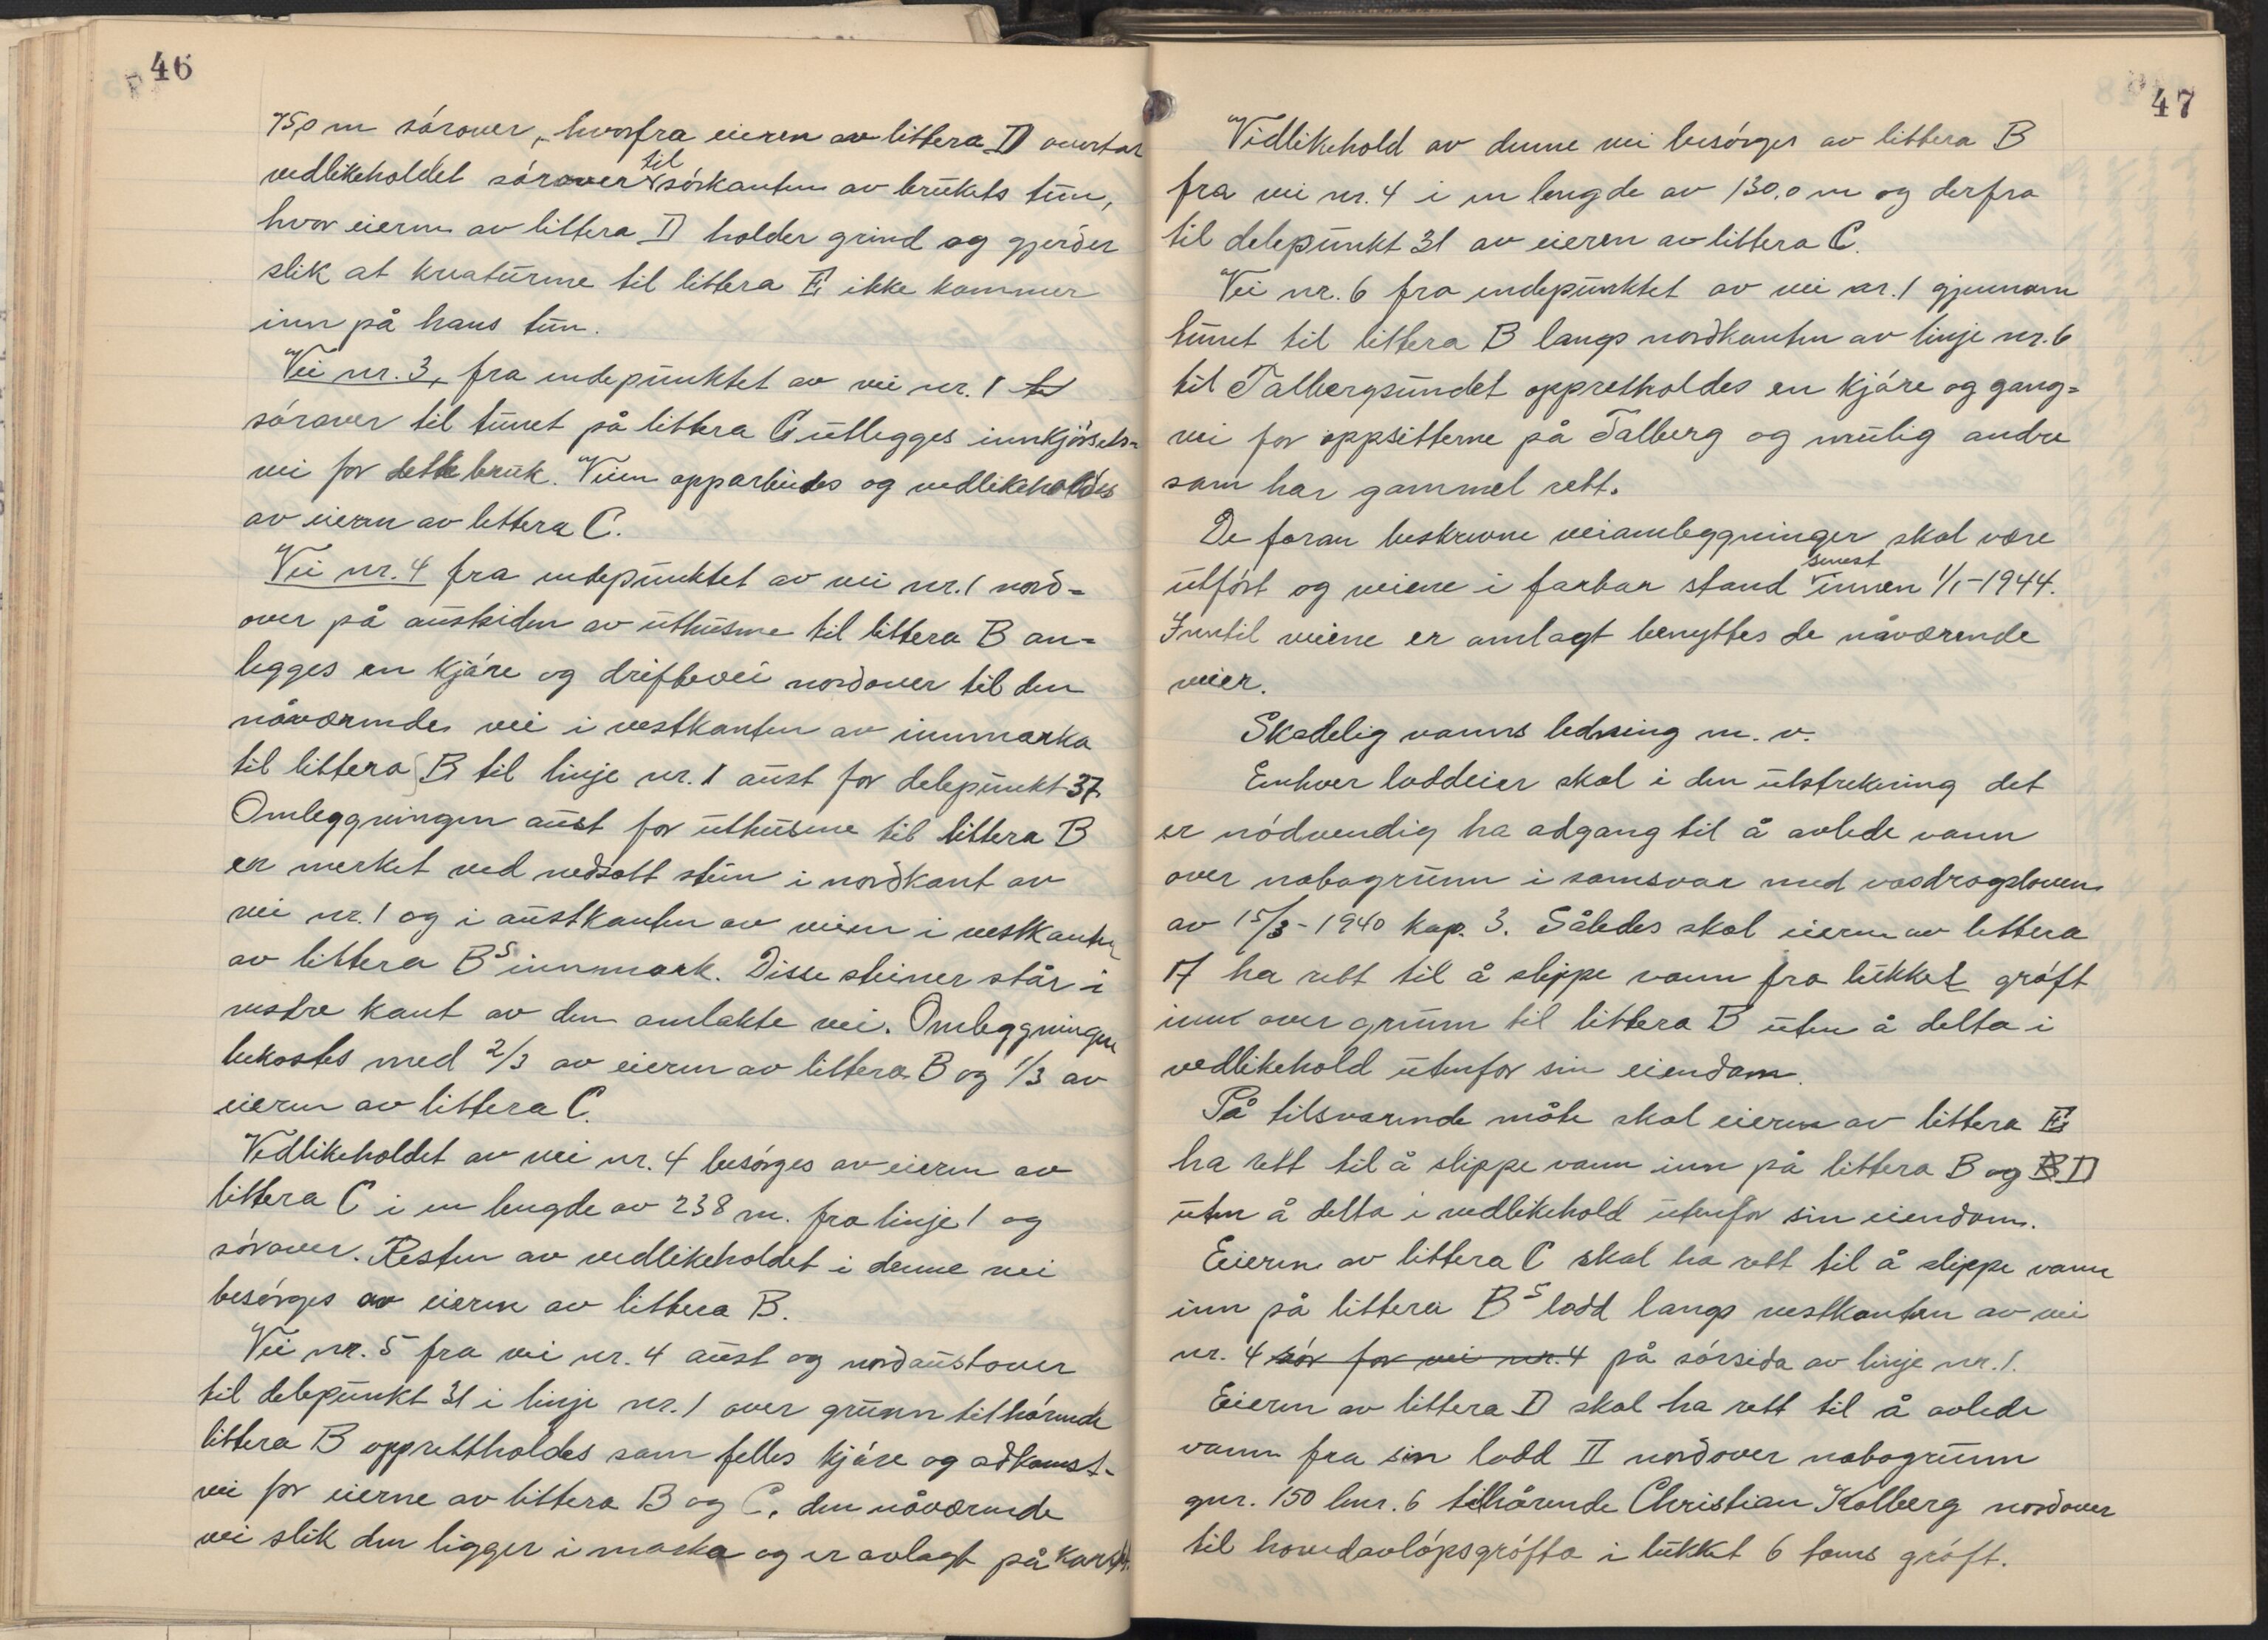 46
75,0 m sórover, hvorfra eieren av littera D overtar
vedlikeholdet sórover til sórkanten av brukets tun,
hvor eieren av littera D holder grind og gjerder
slik at kreaturene til littera E ikke kommer
inn på hans tun.
Vei nr. 3, fra endepunktet av vei nr. 1
sórover til tunet på littera C utlegges innkjórsels-
vei for dette bruk. Veien opparbeides og vedlikeholdes
av eieren av littera C.
Vei nr. 4 fra endepunktet av vei nr. 1 nord-
over på austsiden av uthusene til littera B an-
legges en kjóre og driftevei nordover til den
nåværende vei i vestkanten av innmarka
til littera B til linje nr. 1 aust for delepunkt 37.
Omleggningen aust for uthusene til littera B
er merket ved nedsatt stein i nordkant av
vei nr. 1 og i austkanten av veien i vestkanten
av littera B's innmark. Disse steiner står i
vestre kant av den omlakte vei. Omleggningen
bekostes med 2/3 av eieren av littera B og 1/3 av
eieren av littera C.
Vedlikeholdet av vei nr. 4 besórges av eieren av
littera C i en lengde av 238 m. fra linje 1 og
sórover. Resten av vedlikeholdet i denne vei
besórges av eieren av littera B.
Vei nr. 5 fra vei nr. 4 aust og nordaustover
til delepunkt 31 i linje nr. 1 over grunn tilhórende
littera B opprettholdes som felles kjóre og adkomst-
vei for eierne av littera B og C, den nåværende
vei slik den ligger i marka og er avlagt på kartet.
47
Vedlikehold av denne vei besórges av littera B
fra vei nr. 4 i en lengde av 130,0 m og derfra
til delepunkt 31 av eieren av littera C.
Vei nr. 6 fra endepunktet av vei nr. 1 gjennom
tunet til littera B langs nordkanten av linje nr. 6
til Talbergsundet oppretholdes en kjóre og gang=
vei for oppsitterne på Talberg og mulig andre
som har gammel rett.
De foran beskrevne veiomleggninger skal være
utfórt og veiene i farbar stand senest innen 1/1-1944.
Inntil veiene er omlagt benyttes de nåværende
veier.
Skadelig vanns ledning m. v.
Enhver loddeier skal i den utstrekning det
er nódvendig ha adgang til å avlede vann
over nabogrunn i samsvar med vasdragsloven
av 15/3-1940 kap. 3. Således skal eieren av littera
A ha rett til å slippe vann fra lukket gróft
inn over grunn til littera B uten å delta i
vedlikehold utenfor sin eiendom.
På tilsvarende måte skal eieren av littera E
ha rett til å slippe vann inn på littera B og B D
uten å delta i vedlikehold utenfor sin eiendom.
Eieren av littera C skal ha rett til å slippe vann
inn på littera B's lodd langs vestkanten av vei
nr. 4 sór for vei nr. 4 på sórsida av linje nr. 1.
Eieren av littera D skal ha rett til å avlede
vann fra sin lodd II nordover nabogrunn
gnr. 150 bnr. 6 tilhórende Christian Kolberg nordover
til hovedavlópsgrófta i lukket 6 toms gróft.